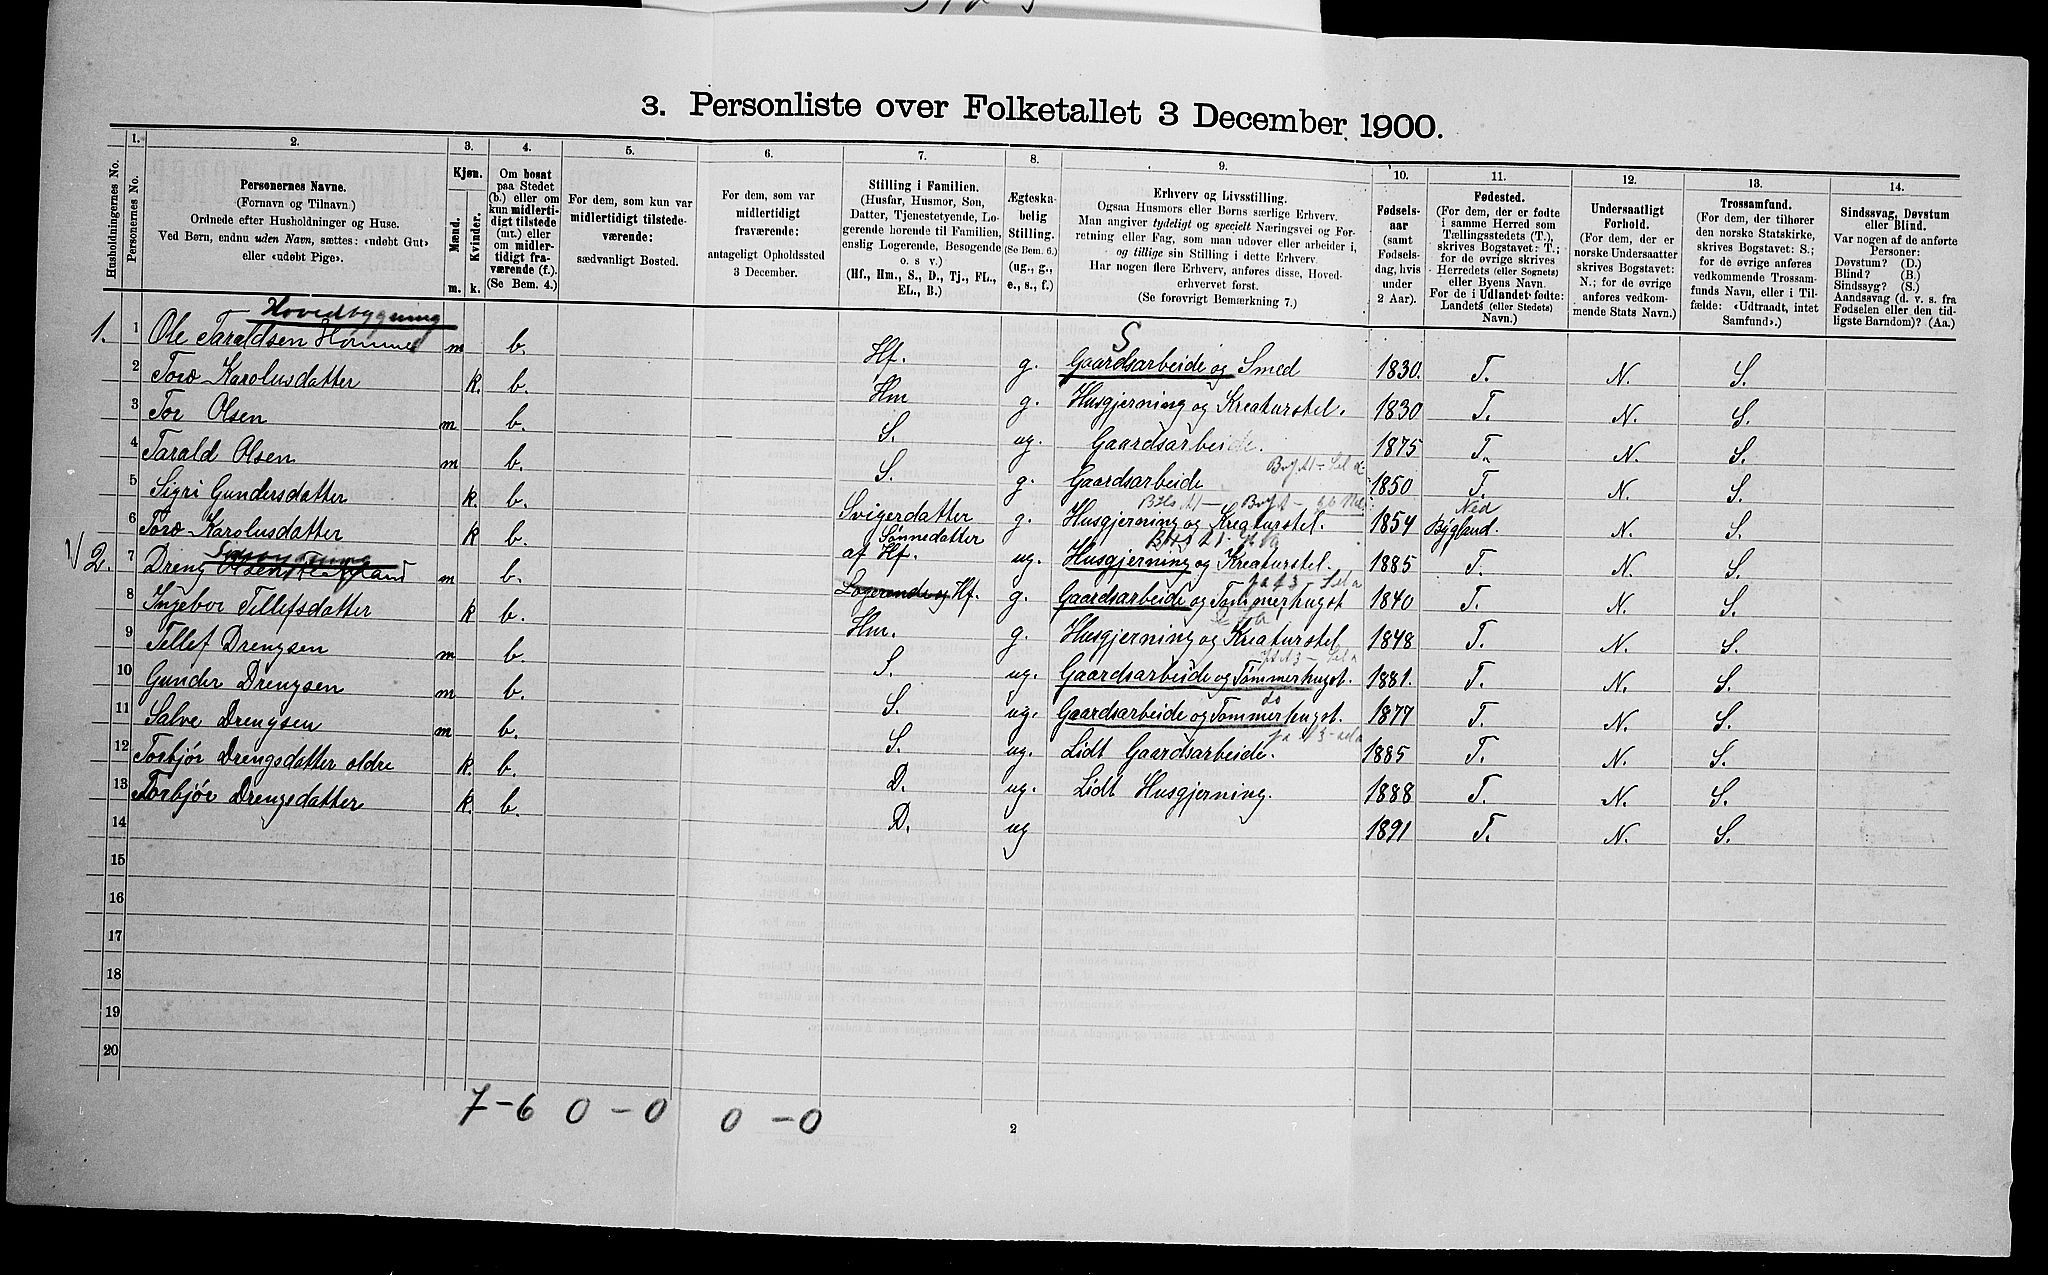 3. Personliste over Folketallet 3 December 1900.
Husholdningernes No.
1.
Personernes No.
2.
Personernes Navne.
(Fornavn og Tilnavn.)
Ordnede efter Husholdninger og Huse.
Ved Børn, endnu uden Navn, sættes: «udøbt Gut»
eller «udøbt Pige».
3.
Kjøn.
Mænd.
Kvinder.
m.
k.
4.
Om bosat
paa Stedet
(b.) eller om
kun midlerti-
digt tilstede
(mt.) eller
om midler-
tidigt fra-
værende (f.).
(Se Bem. 4.)
5.
For dem, som kun var
midlertidigt tilstede-
værende:
sædvanligt Bosted.
6.
For dem, som var
midlertidigt
fraværende:
antageligt Opholdssted
3 December.
7.
Stilling i Familien.
(Husfar, Husmor, Søn,
Datter, Tjenestetyende, Lo-
gerende hørende til Familien,
enslig Logerende, Besøgende
o. s v.)
(Hf., Hm., S., D., Tj., FL.,
EL., B.)
8.
Ægteska-
belig
Stilling.
(Se Bem. 6.)
(ug., g.,
e., s., f.)
9.
Erhverv og Livsstilling.
Ogsaa Husmors eller Børns særlige Erhverv.
Man angiver tydeligt og specielt Næringsvei og For-
retning eller Fag, som man udøver eller arbeider i,
og tillige sin Stilling i dette Erhverv.
Har nogen flere Erhverv, anføres disse, Hoved-
erhvervet først.
(Se forøvrigt Bemærkning 7.)
10.
Fødsels-
aar
(samt
Fødsels-
dag, hvis
under
2 Aar).
11.
Fødested.
(For dem, der er fødte
i samme Herred som
Tællingsstedets (T.),
skrives Bogstavet: T.;
for de øvrige skrives
Herredets (eller Sognets)
eller Byens Navn.
For de i Udlandet fødte:
Landets (eller Stedets)
Navn.)
12.
Undersaatligt
Forhold.
(For dem, der er
norske Undersaatter
skrives Bogstavet:
N.; for de øvrige
anføres vedkom-
mende Stats Navn.)
13.
Trossamfund.
(For dem, der tilhører
den norske Statskirke,
skrives Bogstavet: S.;
for de øvrige anføres
vedkommende Trossam-
funds Navn, eller i Til-
fælde: «Udtraadt, intet
Samfund».)
14.
Sindssvag, Døvstum
eller Blind.
Var nogen af de anførte
Personer:
Døvstum? (D.)
Blind? (B.)
Sindssyg? (S.)
Aandssvag (d. v. s. fra
Fødselen eller den tid-
ligste Barndom)? (Aa.)
Hovedbygning
1. 1 Ole Taraldsen Homme m b. Hf. g. Gaardsarbeide og Smed 1830. T. N. S.
S
2 Toro Karolusdatter k. b. Hm g. Husgjerning og Kreaturstel. 1830 T. N. S.
3 Tor Olsen m b. S. ug. Gaardsarbeide. 1875 T. N. S.
4 Tarald Olsen m b. S. g. Gaardsarbeide 1850 T. N. S.
5 Sigri Gundersdatter k. b. Svigerdatter g. Husgjerning og Kreaturstel. 1854 Bygland. N. S.
Ned
6 Toro Karolusdatter k b. Sønnedatter af Hf. ug. Husgjerning og Kreaturstel. 1885 T. N. S.
2. 7 Dreng Olsen m b. Logerende og Hf. g. Gaardsarbeide og Tømmerhugst 1840 T. N. S.
8 Ingebor Tellefsdatter k b. Hm. g. Husgjerning og Kreaturstel 1848 T. N. S.
9 Tellef Drengsen m b. S. ug. Gaardsarbeide og Tømmerhugst. 1881. T. N. S.
10 Gunder Drengsen m b. S. ug. Gaardsarbeide og Tømmerhugst. 1877 T. N. S.
do
11 Salve Drengsen m b. S. ug. Lidt Gaardsarbeide. 1885 T. N. S.
12 Torbjør Drengsdatter oldre k. b. D. ug. Lidt Husgjerning. 1888 T. N. S.
13 Torbjør Drengsdatter k. b. D. ug 1891 T. N. S.
14
15
16
17
18
19
20
7 - 6 0 - 0 0 - 0
2